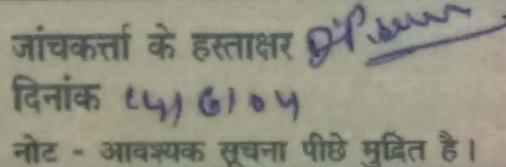 जांचकर्त्ता के हस्ताक्षर
दिनांक
नोट - आवश्यक सूचना पीछे मुद्रित है।